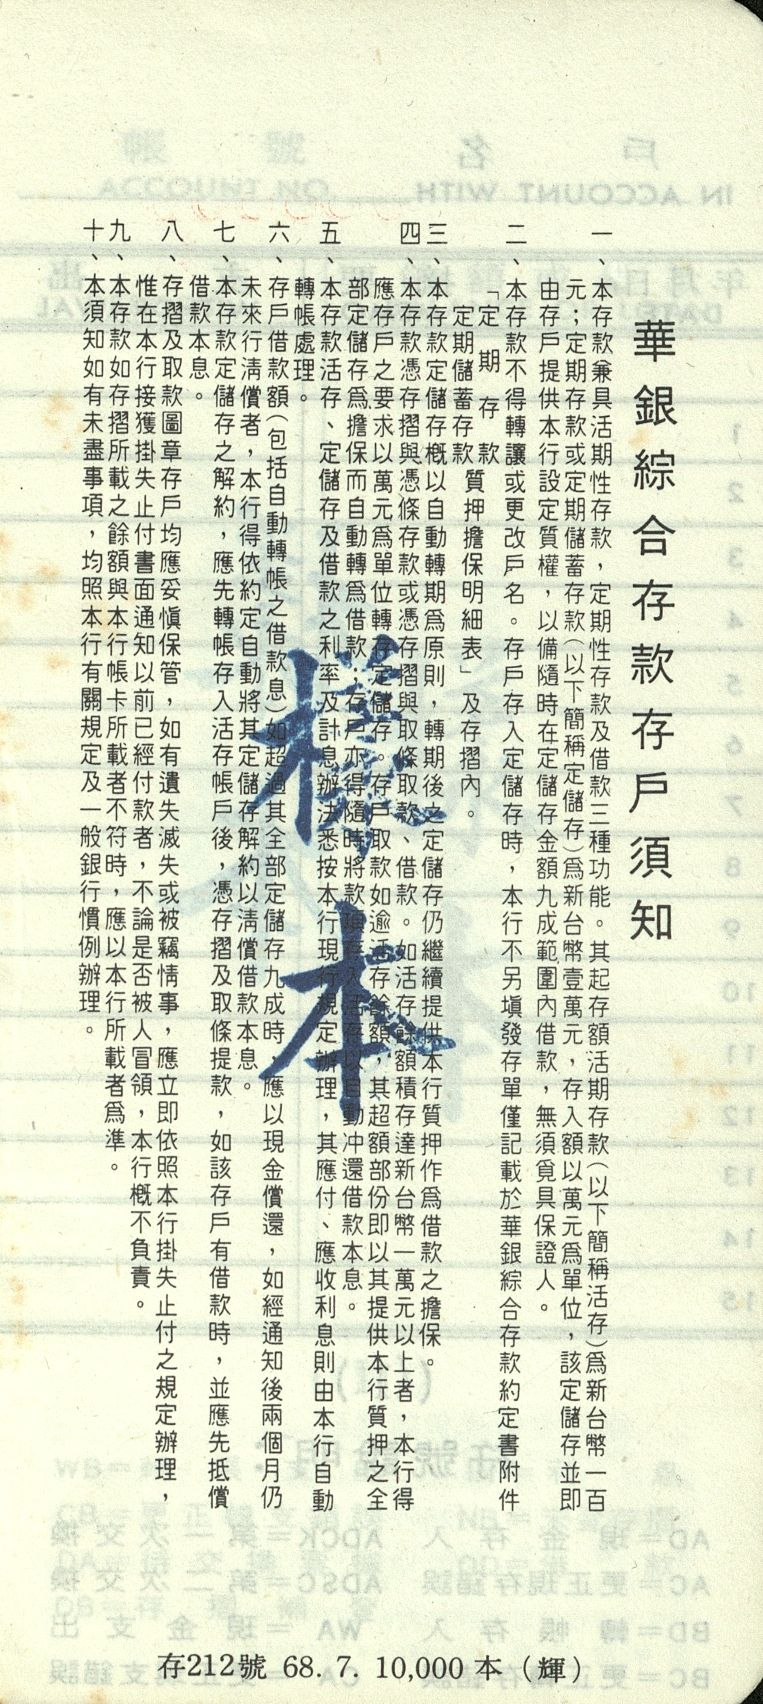 華銀綜合存款存戶須知
一、本存款兼具活期性存款，定期性存款及借款三種功能。其起存額活期存款（以下簡稱活存）爲新台幣一百
元；定期存款或定期儲蓄存款（以下簡稱定儲存）爲新台幣壹萬元，存入額以萬元爲單位，該定儲存並即
由存戶提供本行設定質權，以備隨時在定儲存金額九成範圍內借款，無須覓具保證人。
二、本存款不得轉讓或更改戶名。存戶存入定儲存時，本行不另塡發存單僅記載於華銀綜合存款約定書附件
「定期存款
定期儲蓄存款
質押擔保明細表」及存摺內。
三、本存款定儲存概以自動轉期爲原則，轉期後之定儲存仍繼續提供本行質押作爲借款之擔保。
四、本存款憑存摺與憑條存款或憑存摺與取條取款、借款。如活存餘額積存達新台幣一萬元以上者，本行得
應存戶之要求以萬元爲單位轉存定儲存。存戶取款如逾活存餘額，其超額部份即以其提供本行質押之全
部定儲存爲擔保而自動轉爲借款；存戶亦得隨時將款項存入活存以自動冲還借款本息。
五、本存款活存、定儲存及借款之利率及計息辦法悉按本行現行規定辦理，其應付、應收利息則由本行自動
轉帳處理。
六、存戶借款額（包括自動轉帳之借款息）如超過其全部定儲存九成時，應以現金償還，如經通知後兩個月仍
未來行淸償者，本行得依約定自動將其定儲存解約以淸償借款本息。
七、本存款定儲存之解約，應先轉帳存入活存帳戶後，憑存摺及取條提款，如該存戶有借款時，並應先抵償
借款本息。
八、存摺及取款圖章存戶均應妥愼保管，如有遺失滅失或被竊情事，應立即依照本行掛失止付之規定辦理，
惟在本行接獲掛失止付書面通知以前已經付款者，不論是否被人冒領，本行槪不負責。
九、本存款如存摺所載之餘額與本行帳卡所載者不符時，應以本行所載者爲準。
十、本須知如有未盡事項，均照本行有關規定及一般銀行慣例辦理。
樣本
存212號 68. 7. 10,000本（輝）